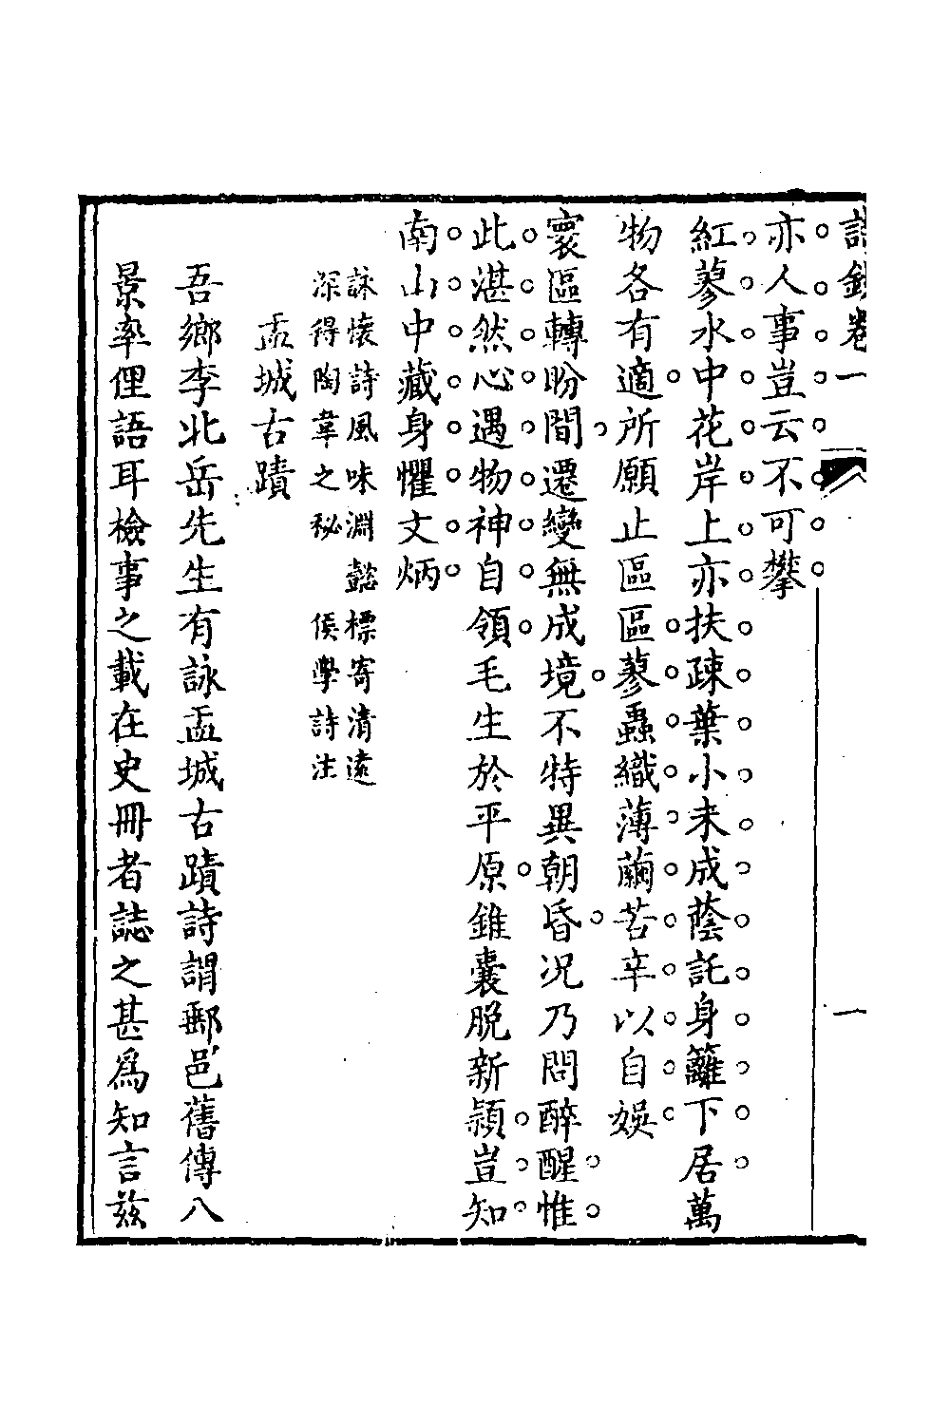 詩鈔卷一
一
亦人事豈云不可攀
紅蓼水中花岸上亦扶疎葉小未成蔭託身籬下居萬
物各有適所願止區區蓼蟲織薄繭苦辛以自娛
寰區轉盼間遷變無成境不特異朝昏况乃問醉醒惟
此湛然心遇物神自領毛生於平原錐囊脫新穎豈知
南山中藏身懼文炳
詠懷詩風味淵懿標寄清遠
深得陶韋之秘 侯學詩注
盂城古蹟
吾鄉李北岳先生有詠盂城古蹟詩謂郵邑舊傳八
景率俚語耳檢事之載在史冊者誌之甚爲知言茲